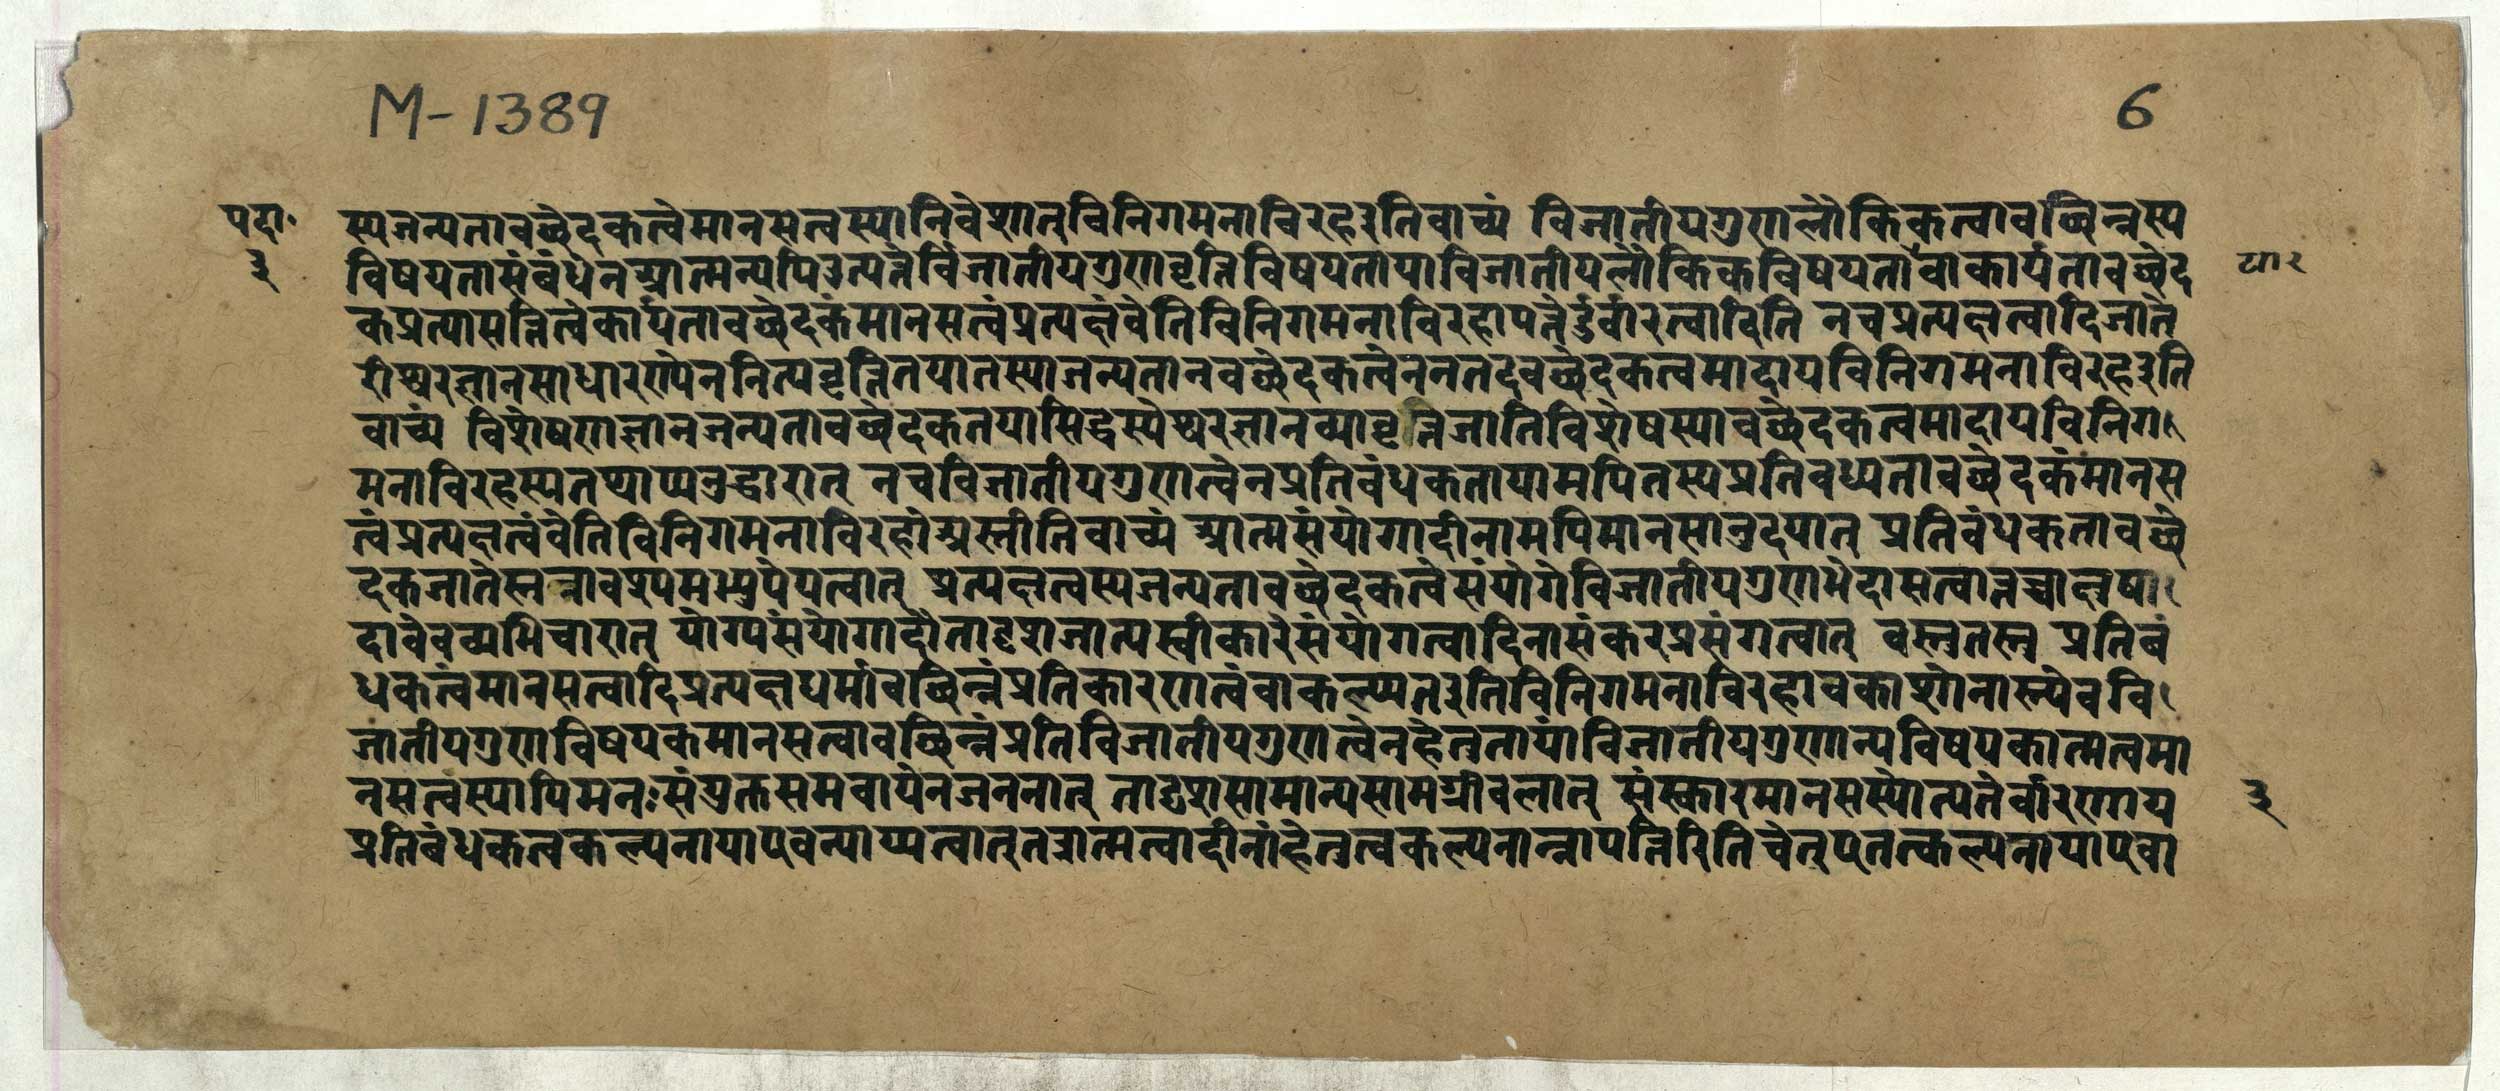 M-1389
6
पदा॰ स्यजन्यतावछेदकत्वेमानसत्वस्यानिवेशात्विनिगमनाविरहइतिवाच्यं विजातीयगुणालौकिकत्वावछिन्नस्य
३ विषयतासंबंधेनआत्मन्यपिउत्पत्तेर्विजातीयगुणवृत्तिविषयतायाविजातीयलौकिकविषयतावाकार्यतावछेद
कप्रत्यासत्तित्वेकार्यतावछेदकंमानसत्वंप्रत्यक्षंवेतिविनिगमनाविरहापत्तेर्दुर्वारत्वादिति नचप्रत्यक्षत्वादिजाते
रीश्वरज्ञानसाधारण्येननित्यवृत्तितयातस्याजन्यतानवछेदकत्वेननतदवछेदकत्वमादायविनिगमनाविरहइति
वाच्यं विशेषणज्ञानजन्यतावछेदकतयासिद्धस्येश्वरज्ञानव्यावृत्तिजातिविशेषस्यावछेदकत्वमादायविनिग
मनाविरहस्यतथाप्यनुद्धारात् नचविजातीयगुणत्वेनप्रतिबंधकतायामपितस्यप्रतिबध्यतावछेदकंमानस
त्वंप्रत्यक्षत्वंवेतिविनिगमनाविरहोअस्तीतिवाच्यं आत्मसंयोगादीनामपिमानसानुदयात् प्रतिबंधकतावछे
दकजातेस्तत्रावश्यमभ्युपेयत्वात् प्रत्यक्षत्वस्यजन्यतावछेदकत्वेसंयोगेविजातीयगुणभेदासत्वात्तच्चाक्षुषा
दावेवव्यभिचारात् योग्यसंयोगादौतादृशजात्यस्वीकारेसंयोगत्वादिनासंकरप्रसंगत्वात् वस्तुतस्तु प्रतिबं
धकत्वंमानसत्वादिप्रत्यक्षधर्मावछिन्नंप्रतिकारणत्वंवाकल्प्यतइतिविनिगमनाविरहावकाशोनास्त्येववि
जातीयगुणविषयकमानसत्वावछिन्नंप्रतिविजातीयगुणत्वेनहेतुतायांविजातीयगुणान्यविषयकात्मत्वमा
नसत्वस्यापिमनःसंयुक्तसमवायेनजननात् तादृशसामान्यसामग्रीबलात् संस्कारमानसस्योत्पत्तेर्वारणाय
प्रतिबंधकत्वकल्पनायाएवन्याय्यत्वात्तत्रात्मत्वादीनांहेतुत्वकल्पनान्नापत्तिरितिचेत्एतत्कल्पनायाएवा
३